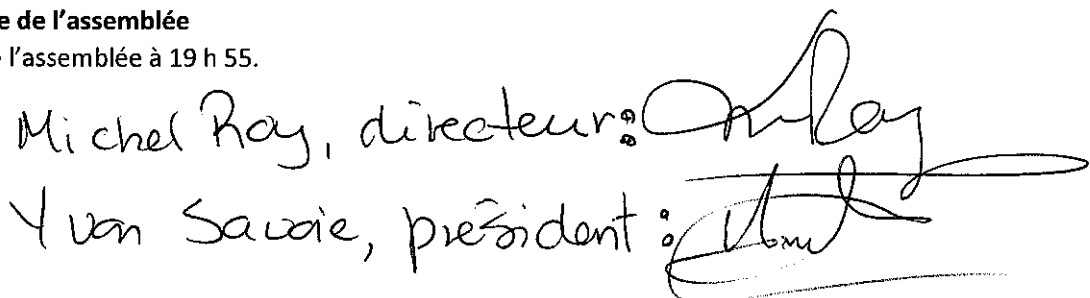 e de l'assemblée
l'assemblée à 19 h 55.
Michel Roy, directeur: M Roy
Yvon Savoie, président: